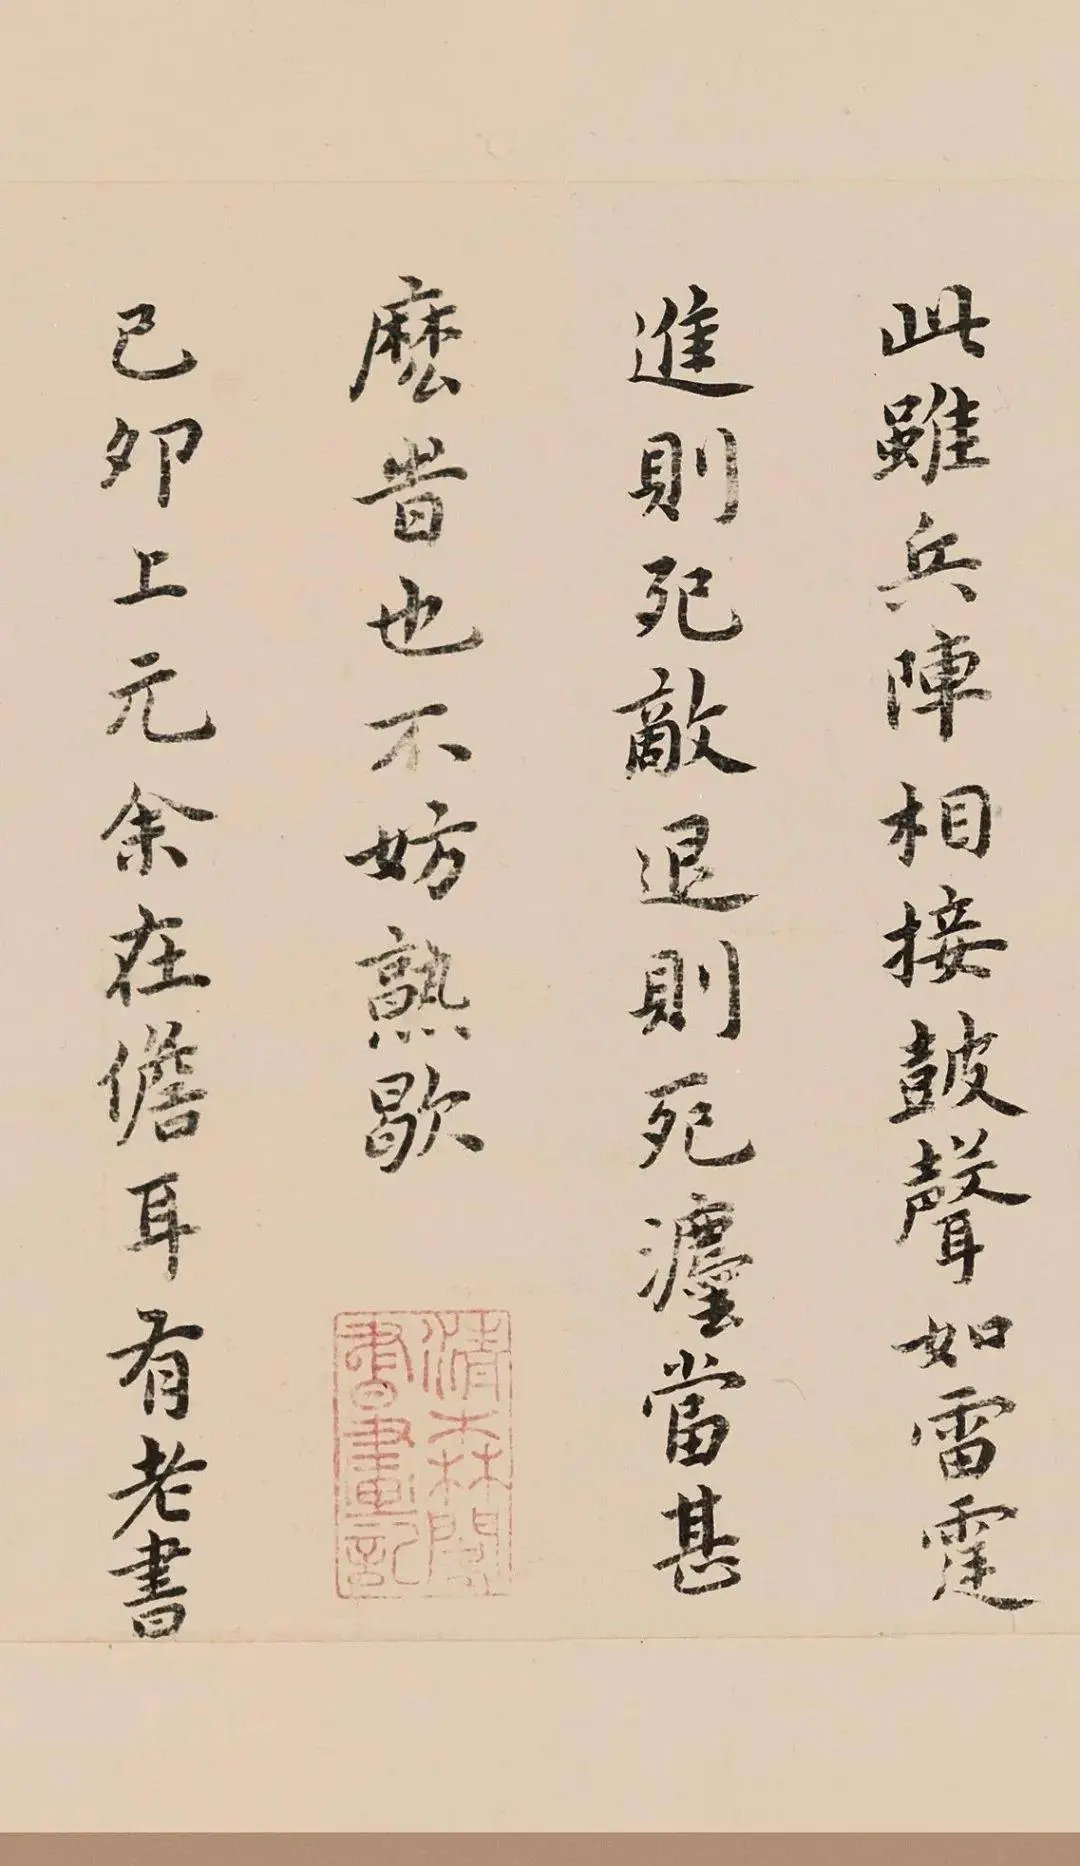 此雖兵陣相接鼓聲如雷霆
進則死敵退則死灋當甚
麽昔也不妨熟歇
己卯上元余在儋耳有老書
清森閣
書畫記